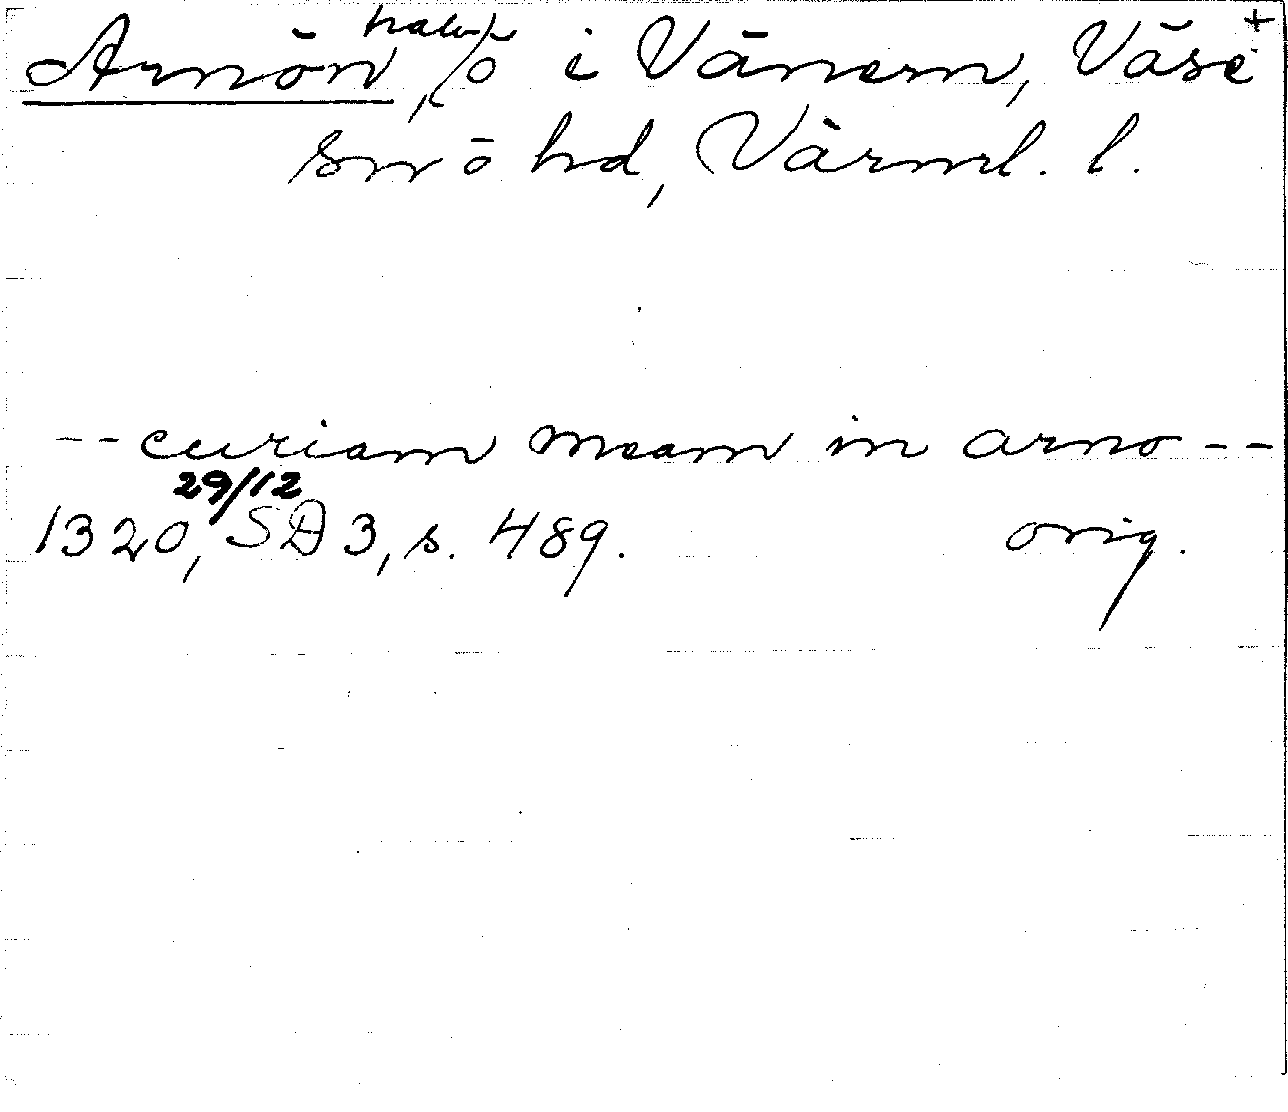 Arnön, halvö i Vänern, Väse +
sn ö hd, Värml. l.
-- curiam meam in arno --
1320, 29/12 SD 3, s. 489. orig.